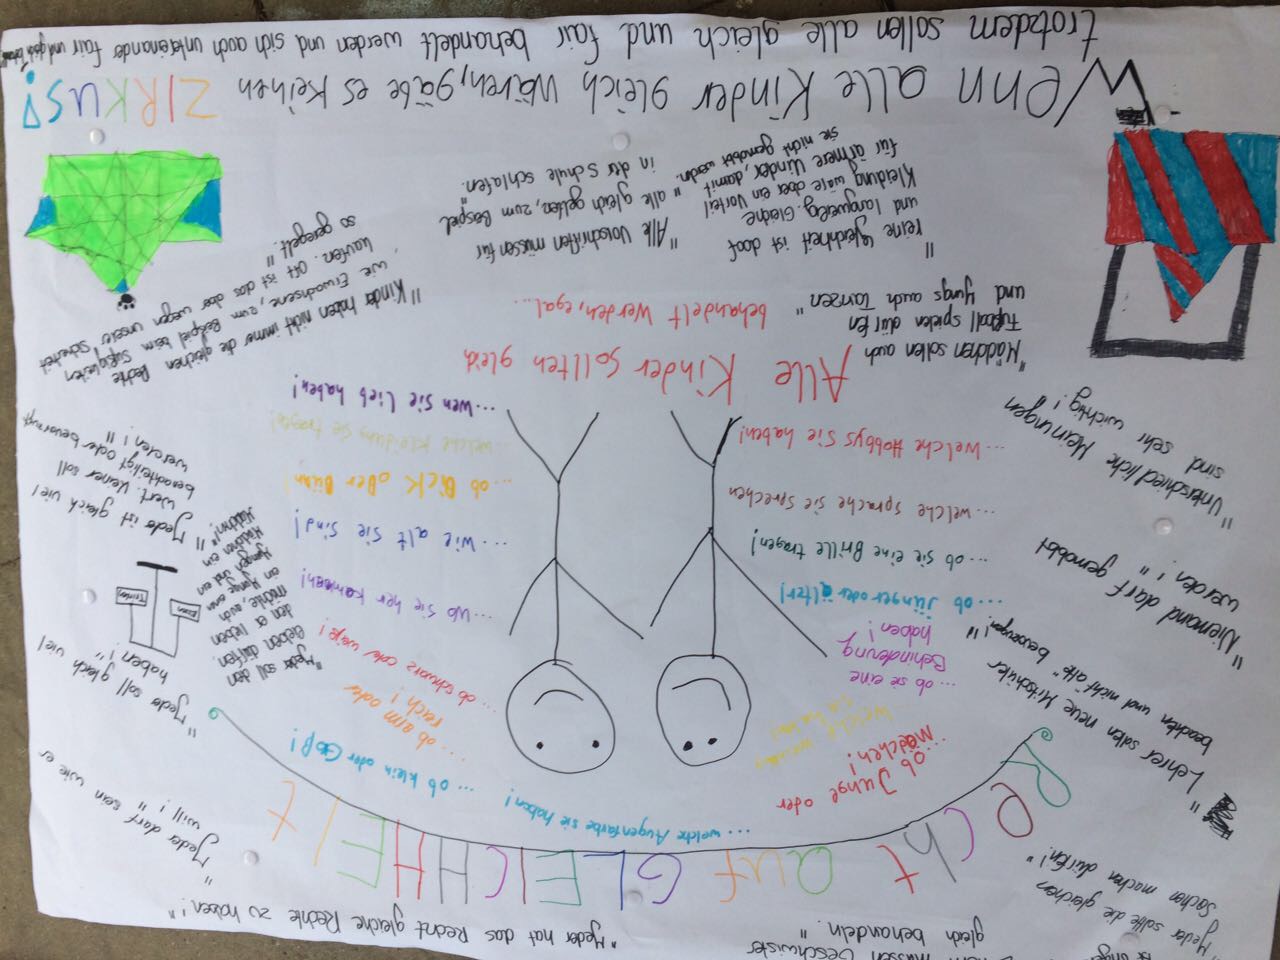 müssen Geschwister
gleich behandeln."
"Jeder hat das Recht gleiche Rechte zu haben!"
Jeder sollte die gleichen
Sachen machen dürfen!"
RECht auf GLEICHHEIt
"Jeder darf sein wie er
will!"
"Lehrer sollen neue Mitschüler
beachten und nicht alte" bevorzugen!"
"Niemand darf gemobbt
werden!"
"Unterschiedliche Meinungen
sind sehr wichtig!
... ob Junge oder
Mädchen!
... welche Augenfarbe sie haben!
... ob klein oder Groß!
... ob arm oder
reich!
... ob schwarz oder weiß!
... ob sie eine
Behinderung
haben!
... ob jünger oder älter!
... ob sie eine Brille tragen!
... welche Sprache sie sprechen
... welche Hobbys Sie haben!
... Wo Sie her kommen!
... wie alt Sie Sind!
... ob Dick oder Dünn!
... welche Kleidung Sie tragen!
... wen Sie Lieb haben!
"Jeder soll gleich viel
haben!"
Trinken
Essen
"Jeder soll den
lieben dürfen
den er lieben
möchte, auch
ein Junge einen
Jungen und ein
Mädchen ein
Mädchen!"
"Jeder ist gleich viel
Wert. Keiner soll
benachteiligt oder bevorzugt
werden!"
Alle Kinder sollten gleich
behandelt werden, egal...
"Mädchen sollen auch
Fußball spielen dürfen
und Jungs auch Tanzen"
"Kinder haben nicht immer die gleichen Rechte
wie Erwachsene, zum Beispiel beim Süßigkeiten
kaufen. Oft ist das aber wegen unserer Sicherheit
so geregelt."
"reine Gleichheit ist doof
und langweilig. Gleiche
Kleidung wäre aber ein Vorteil
für ärmere Kinder, damit
sie nicht gemobbt werden."
"Alle Vorschriften müssen für
alle gleich gelten, zum Beispiel
in der Schule schlafen."
Wenn alle Kinder gleich wären, gäbe es keinen ZIRKUS!
trotzdem sollen alle gleich und fair behandelt werden und sich auch untereinander fair und gleich